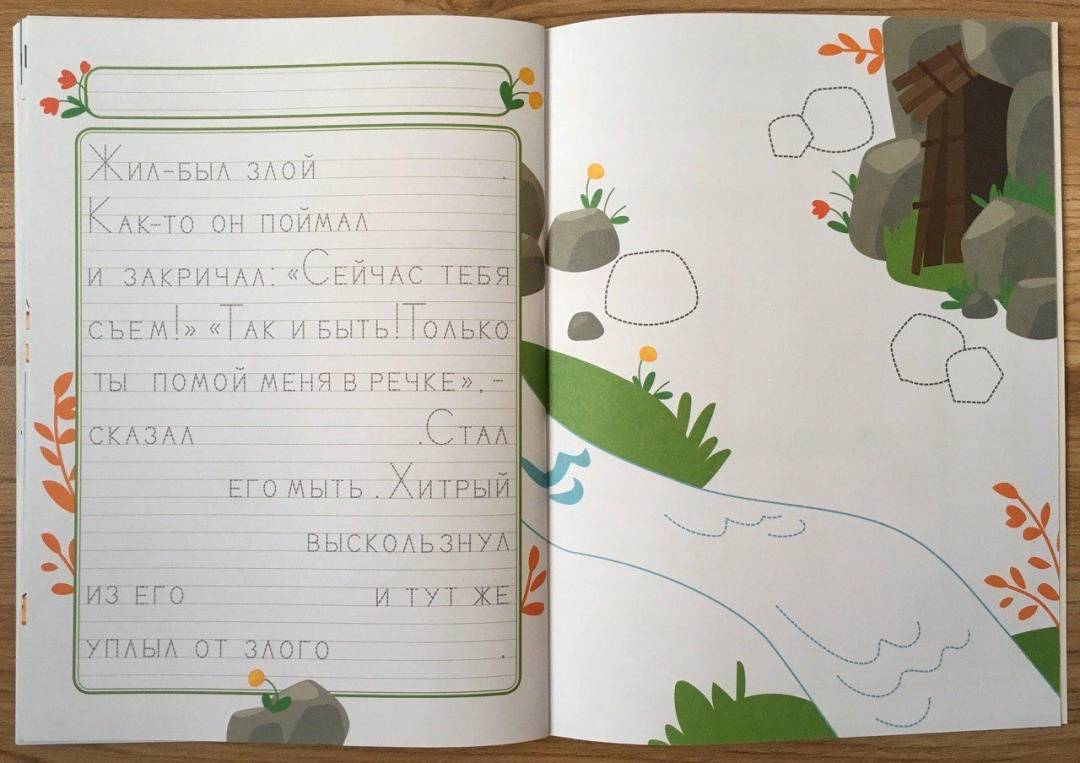 Жил-был злой .
Как-то он поймал
и закричал: «Сейчас тебя
съем!» «Так и быть! Только
ты помой меня в речке», –
сказал . Стал
его мыть . Хитрый
выскользнул
из его и тут же
уплыл от злого .